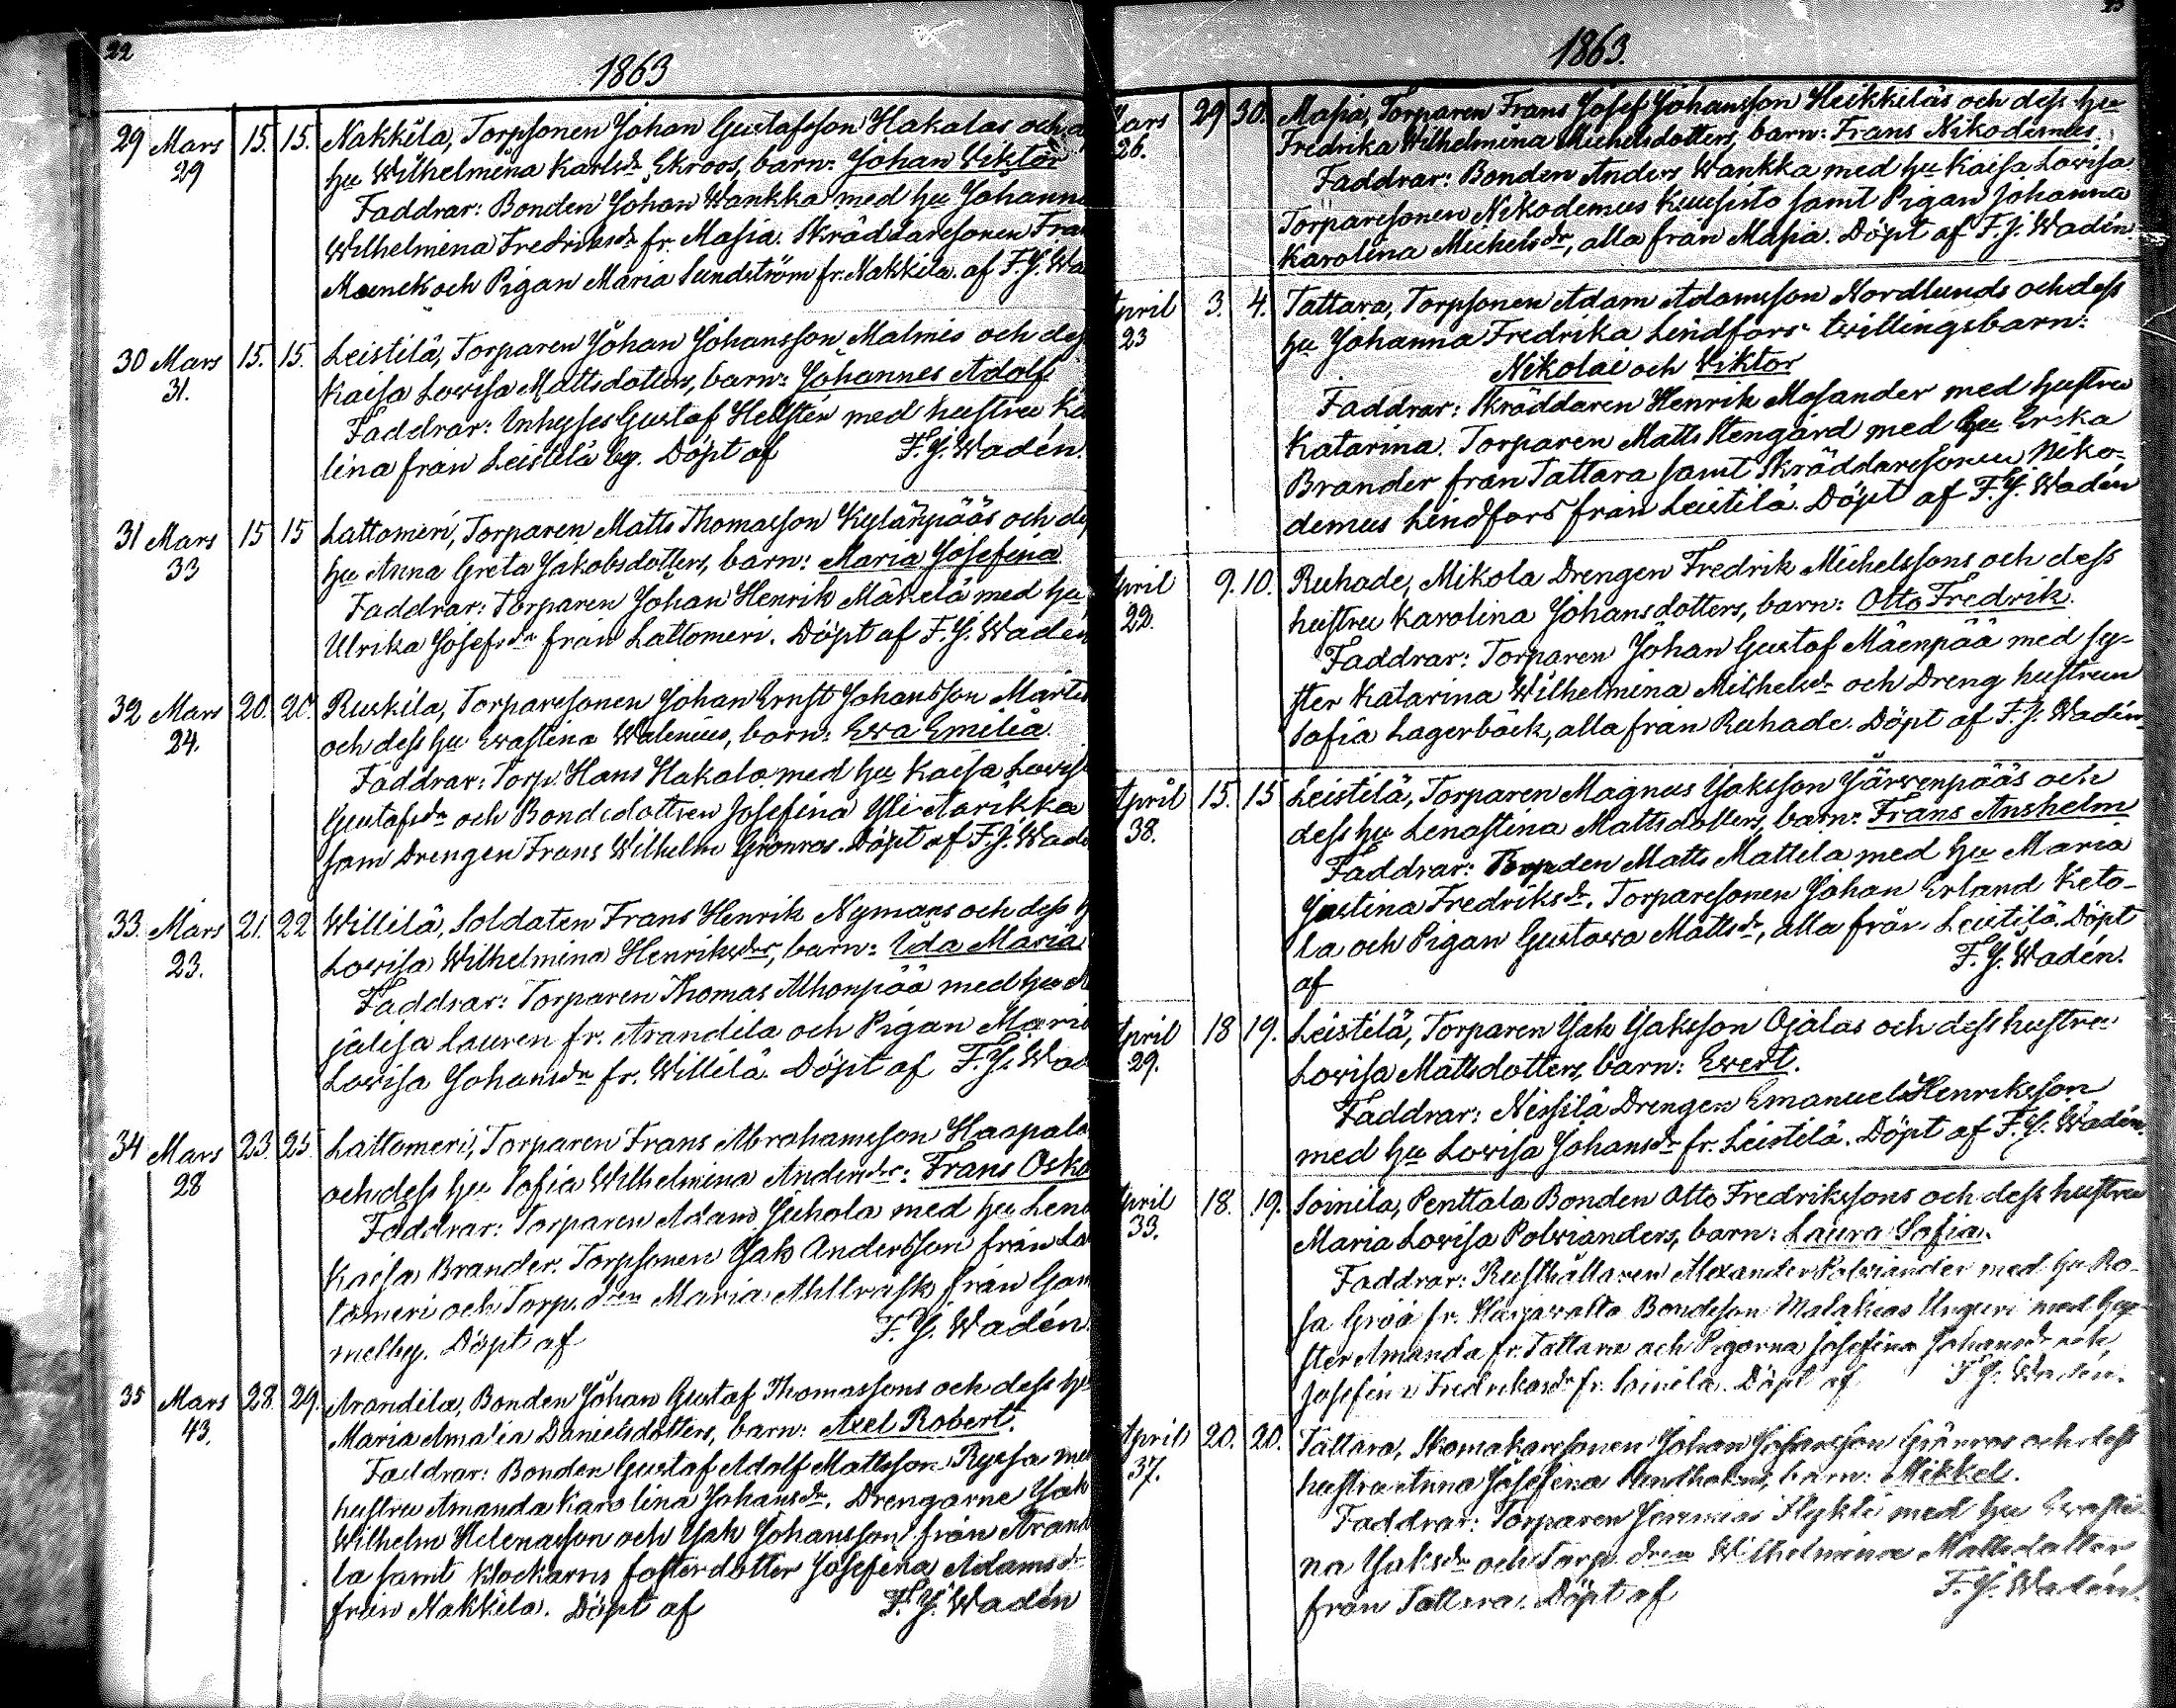 22
1863
29 Mars 15. 15. Nakkila, Torpsonen Johan Gustafsson Hakalas och
29 hu Wilhelmina Karlsdr Ekroos, barn: Johan Wiktor
Faddrar: Bonden Johan Wankka med hu Johanna
Wilhelmina Fredriksdr fr. Masia. Skräddaresonen Fran
Munck och Pigan Maria Sundström fr. Nakkila. af F. J. Wa
30 Mars 15. 15. Leistilä, Torparen Johan Johansson Malmis och dess
31. Kaisa Lovisa Mattsdotters, barn: Johannes Adolf
Faddrar: Inhyses Gustaf Hellstén med hustru Ka
lina från Leistilä by. Döpt af F. J. Wadén.
31 Mars 15 15 Lattomeri, Torparen Matts Thomasson Kylänpääs och de
33 hu Anna Greta Jakobsdotters, barn: Maria Josefina
Faddrar: Torparen Johan Henrik Mäkelä med hu
Ulrika Josefsdr från Lattomeri. Döpt af F. J. Wadén
32 Mars 20. 20. Ruskila, Torparesonen Johan Ernst Johansson Marti
24. och dess hu Evastina Walenius, barn: Ewa Emilia.
Faddrar: Torp. Hans Hakala med hu Kaisa Lovisa
Gustafsdr och Bondedottren Josefina Yli-Aarikka
sam Drengen Frans Wilhelm Grönros. Döpt af F. J. Wadé
33. Mars 21. 22 Willilä, Soldaten Frans Henrik Nymans och dess h
23. Lovisa Wilhelmina Henriksdrs, barn: Ida Maria
Faddrar: Torparen Thomas Alhonpää med hu M
jälisa Lauren fr. Arandila och Pigan Mari
Lovisa Johansdr fr. Willilä. Döpt af F. J. Wad
34 Mars 23. 25. Lattomeri, Torparen Frans Abrahamsson Haapala
28 och dess hu Sofia Wilhelmina Andersdrs: Frans Oska
Faddrar: Torparen Adam Juhola med hu Lena
Kaisa Brander. Torpsonen Jak Andersson från La
tomeri och Torp. dren Maria AhlTrask från Gam
melby. Döpt af F. J. Wadén.
35 Mars 28. 29. Arandila, Bonden Johan Gustaf Thomassons och dess hu
43. Maria Amalia Danielsdotters, barn: Axel Robert.
Faddrar: Bonden Gustaf Adolf Mattsson Ryssa med
hustru Amanda Karolina Johansdr. Drengarne Jak
Wilhelm Helenasson och Jak Johansson från Arand
la samt Klockarns fosterdotter Josefina Adamsdr
från Nakkila. Döpt af F. J. Wadén
1863.
Mars 29 30. Masia, Torparen Frans Josef Johansson Heikkiläs och dess hu
26. Fredrika Wilhelmina Michelsdotters, barn: Frans Nikodemus.
Faddrar: Bonden Anders Wankka med hu Kaisa Lovisa.
Torparesonen Nikodemus Kuusisto samt Pigan Johanna
Karolina Michelsdr, alla från Masia. Döpt af F. J. Wadén.
April 3. 4. Tattara, Torpsonen Adam Adamsson Nordlunds och dess
23 hu Johanna Fredrika Lindfors twillingsbarn:
Nikolai och Wiktor
Faddrar: Skräddaren Henrik Mosander med hustru
Katarina. Torparen Matts Stengård med hu Erika
Brander från Tattara samt Skräddaresonen Niko-
demus Lindfors från Leistilä. Döpt af F. J. Wadén
April 9. 10. Ruhade, Mikola Drengen Fredrik Michelssons och dess
22. hustru Karolina Johansdotters, barn: Otto Fredrik.
Faddrar: Torparen Johan Gustaf Mäenpää med sy-
ster Katarina Wilhelmina Michelsdr och Dreng hustrun
Sofia Lagerbäck, alla från Ruhade. Döpt af F. J. Wadén
April 15. 15 Leistilä, Torparen Magnus Jaksson Järvenpääs och
38. dess hu Lenastina Mattsdotters, barn: Frans Anshelm
Faddrar: Matts Mattela med hu Maria
Justina Fredriksdr. Torparesonen Johan Erland Keto-
la och Pigan Gustava Mattsdr, alla från Leistilä. Döpt
af F. J. Wadén.
April 18 19. Leistilä, Torparen Jak Jaksson Ojalas och dess hustru
29. Lovisa Mattsdotters, barn: Ewert.
Faddrar: Nissilä Drengen Emanuel Henriksson
med hu Lovisa Johansdr fr. Leistilä. Döpt af F. J. Wadén.
April 18. 19. Soinila, Penttala Bonden Otto Fredrikssons och dess hustru
33. Maria Lovisa Polvianders, barn: Laura Sofia.
Faddrar: Rusthållaren Alexander Polviander med hu Ro-
sa Gröa fr. Harjavalta Bondeson Malakias Unguri med Sy-
ster Amanda fr. Tattara och Pigorna Josefina Johansdr och
Josefina Fredriksdr fr. Soinila. Döpt af F. J. Wadén.
April 20. 20. Tattara, Skomakaresonen Johan Johansson Grönros och dess
37. hustru Anna Josefina Sundholms, barn: Mikkel.
Faddrar: Torparen Jeremias Flykti med hu Evasti-
na Jaksdr och Torp. dren Wilhelmina Mattsdotter
från Tattara. Döpt af F. J. Wadén.